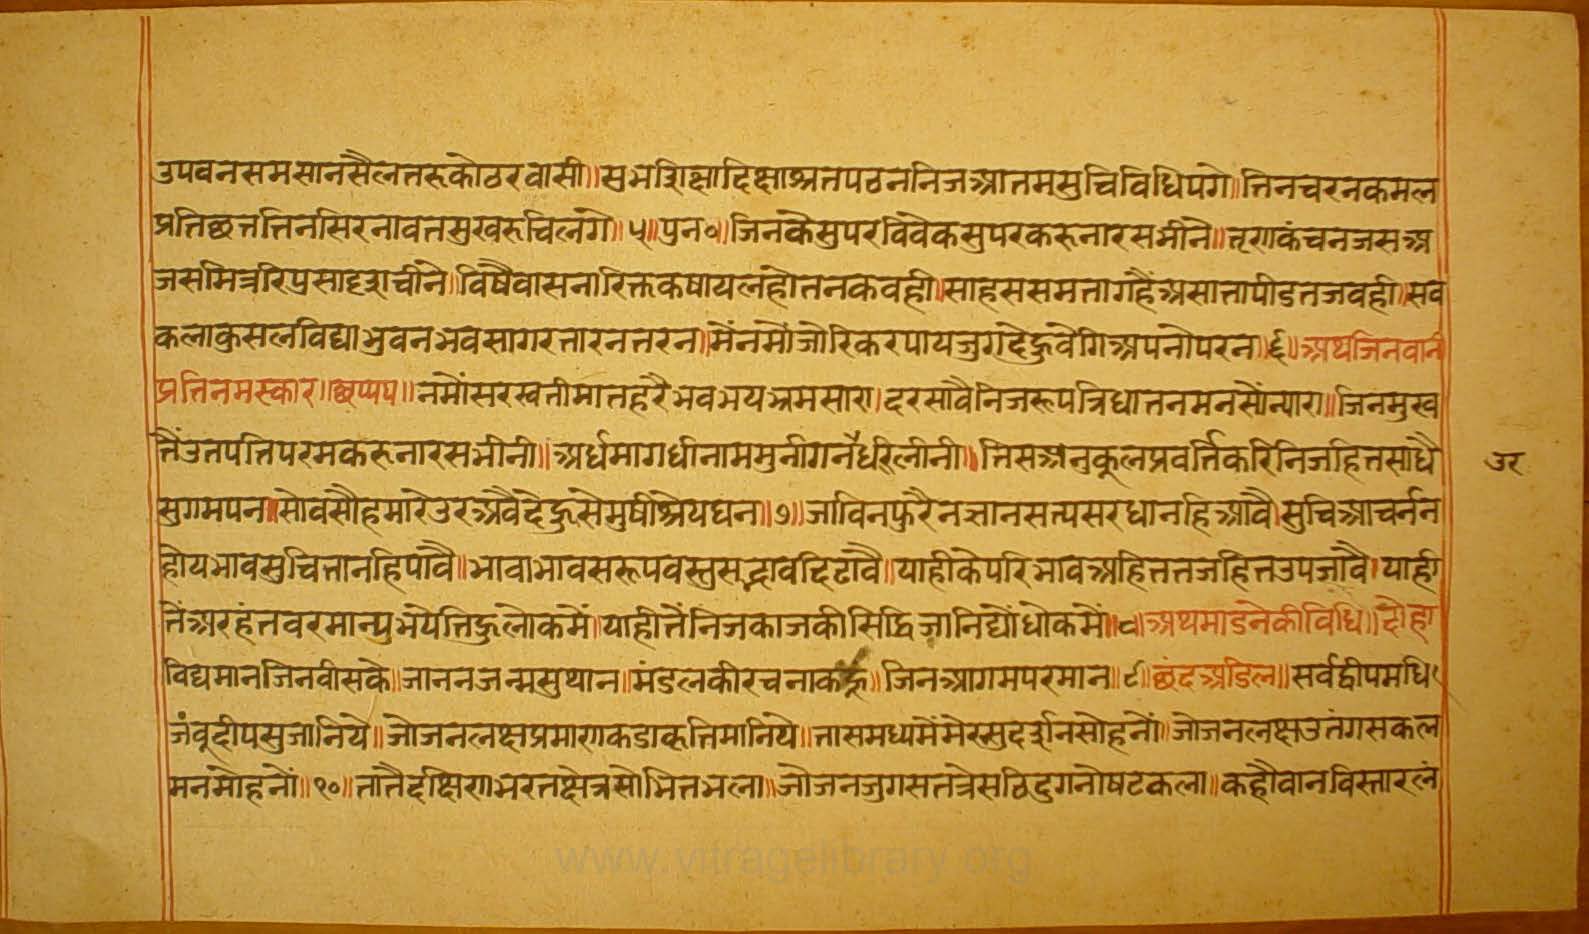 उपवनसमसानसैलतरूकोठरवासी॥सुभशिक्षादिक्षाश्रुतपठननिजआतमसुचिविधिपगे॥तिनचरनकमल
प्रतिछत्ततिनसिरनावतसुखरुचिलगे॥५॥पुन०॥जिनकैसुपरविवेकसुपरकरुनारसभीनै॥तृणकंचनजसअ
जसमित्ररिप्रसादृशचीनै॥विषैवासनारिक्तकषायलहौतनकवही॥साहससमतागहैंअसातापीडतजवही॥सव
कलाकुसलविद्याभुवनभवसागरतारनतरन॥मैंनमौंजोरिकरपायजुगदेहुवेगिअपनोपरन॥६॥अथजिनवानी
प्रतिनमस्कार॥छप्पय॥नमौंसरस्वतीमातहरैभवभयभ्रमसारा॥दरसावैनिजरूपत्रिधातनमनसौंन्यारा॥जिनमुख
तैंउतपतिपरमकरुनारसभीनी॥अर्धमागधीनाममुनीगननैंधरिलीनी॥तिसअनुकूलप्रवर्त्तिकरिनिजहितसाधै
सुगमपन॥सोवसौहमारेउरअवैदेहुसेमुषीश्रेयघन॥७॥जाविनफुरैनज्ञानसत्यसरधानहिआवै॥सुचिआचर्नन
होयभावसुचितानहिपावै॥भावाभावसरूपवस्तुसद्भावदिढावै॥याहीकेपरिभावअहिततजहितउपजावै॥याही
तैंअरहंतवरमान्पुभयेतिहुलोकमैं॥याहीतैंनिजकाजकीसिद्धिजानिद्यौंधोकमैं॥८॥अथमाडनेकीविधि॥दोहा
विद्यमानजिनवीसके॥जाननजन्मसुथान॥मंडलकीरचनाकहू॥जिनआगमपरमान॥९॥छंदअडिल॥सर्वद्वीपमधि
जंवूदीपसुजानिये॥जोजनलक्षप्रमाणकडाकृतिमानिये॥तासमध्यमैंमेरुसुदर्शनसोहनों॥जोजनलक्षउतंगसकल
मनमोहनों॥१०॥तातैदक्षिणभरतक्षेत्रसोभितभला॥जोजनजुगसतत्रेसठिदुगनोषटकला॥कहौवानविस्तारलं
३२
www.vitragelibrary.org